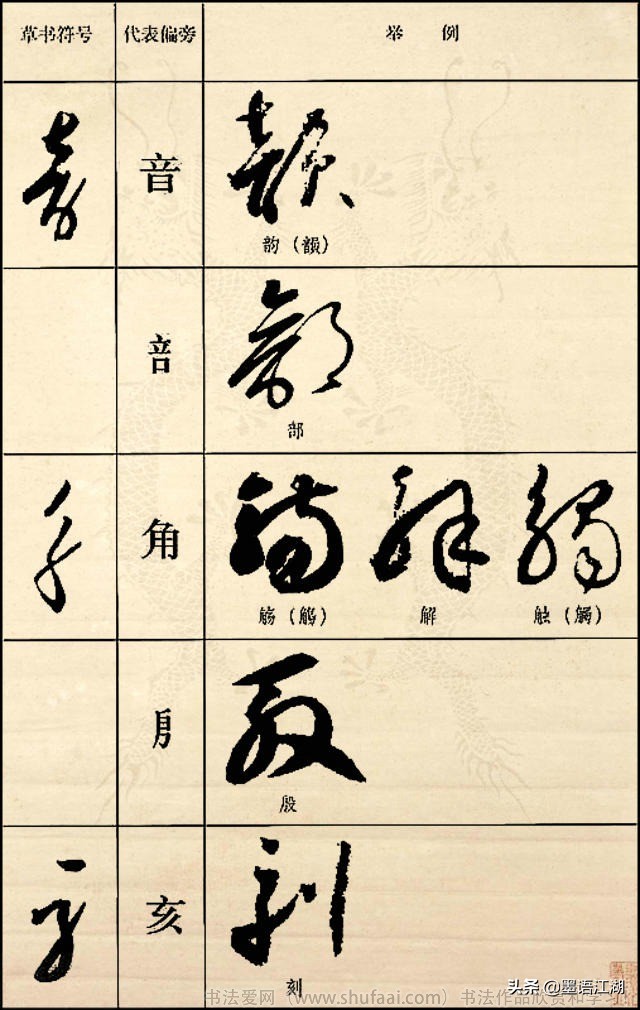 草书符号 代表偏旁 举例
音
韵（韻）
咅
部
角
觞（觴） 解 触（觸）
㐆
殷
亥
刻
书法爱网（www.shufaai.com）书法作品欣赏和学习
头条 @墨语江湖